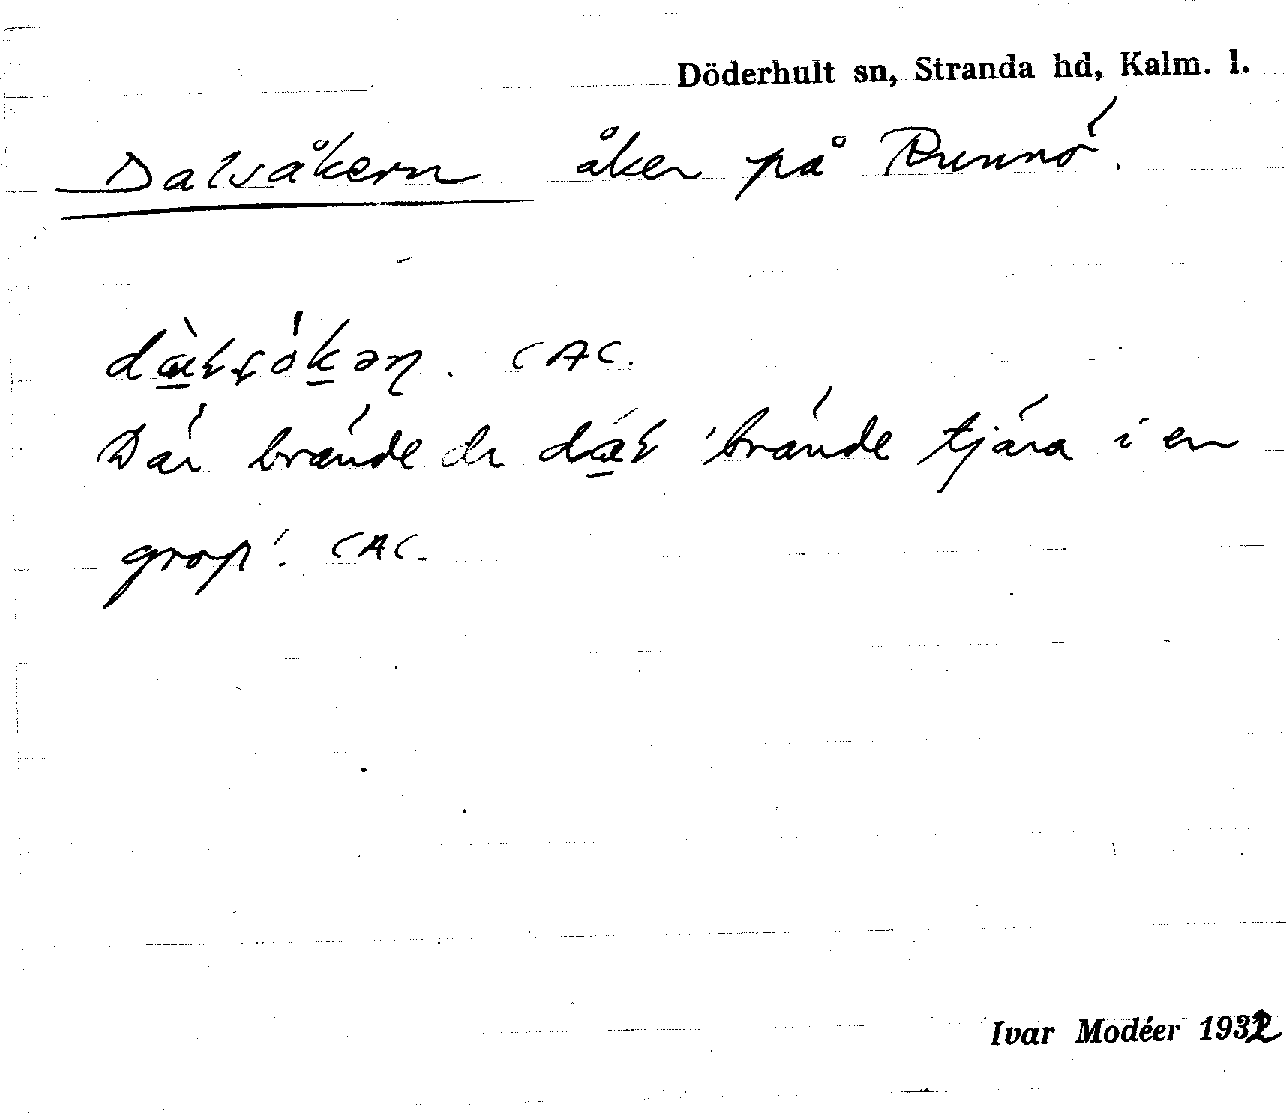 Döderhult sn, Stranda hd, Kalm. l.
Dalsåkern åker på Runnö.
CAC.
Där brände de 'brände tjära i en
grop'. CAC.
Ivar Modéer 1932